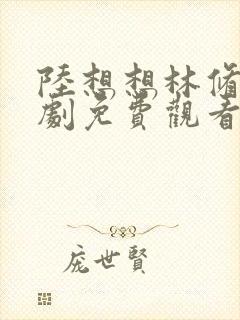 陸想想林脩
劇免費觀看
庞世賢